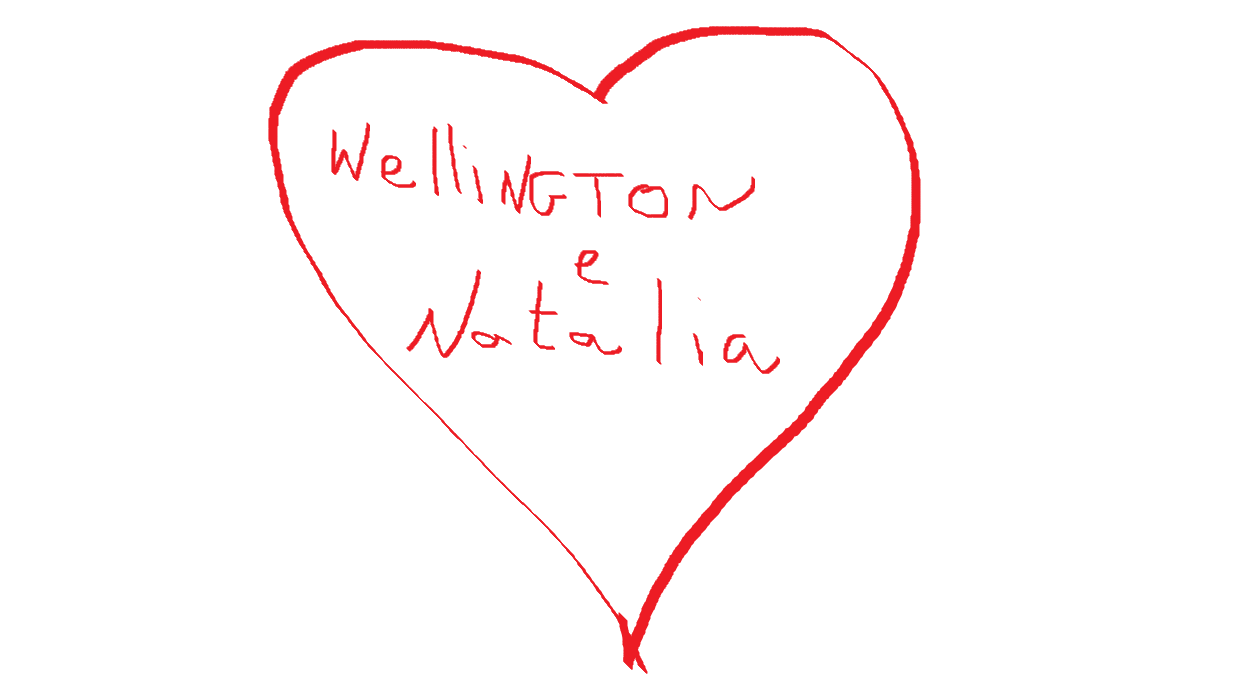 WellINGTON
e
Natalia